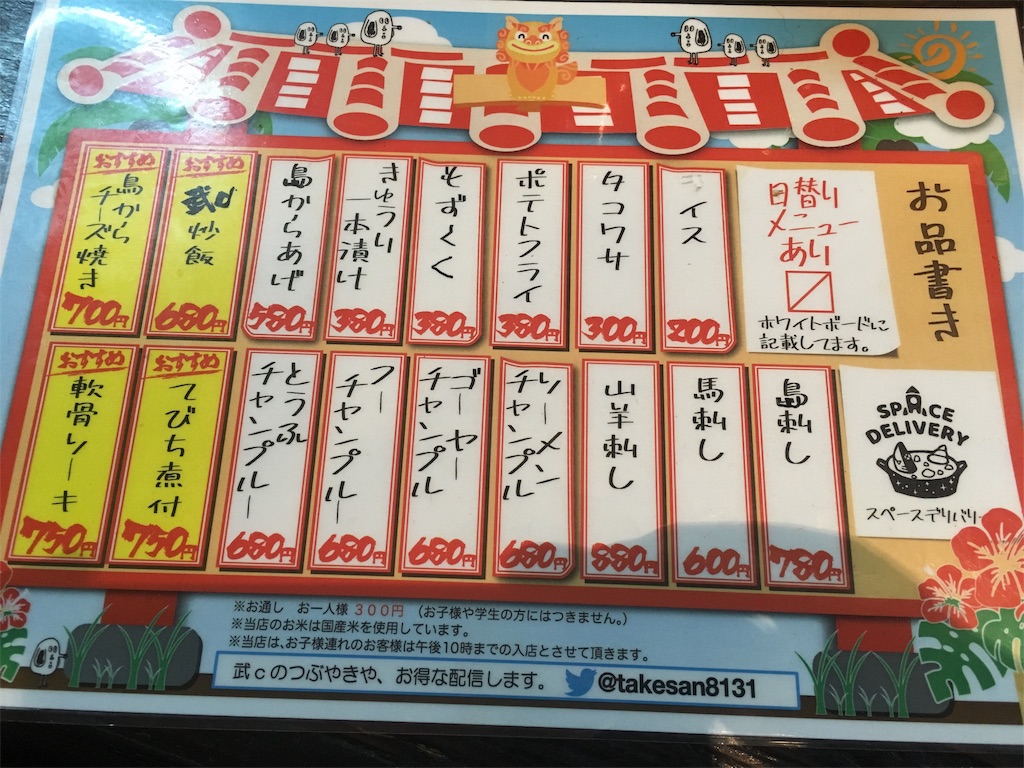 お品書き
日替り
メニュー
あり
ホワイトボードに
記載してます。
ライス
200円
タコワサ
300円
ポテトフライ
380円
もずく
380円
きゅうり
一本漬け
380円
島からあげ
580円
おすすめ
炒飯
680円
おすすめ
島から
チーズ焼き
700円
SPACE
DELIVERY
スペースデリバリー
島刺し
780円
馬刺し
600円
山羊刺し
880円
ソーメン
チャンプル
680円
ゴーヤー
チャンプル
680円
フー
チャンプルー
680円
とうふ
チャンプルー
680円
おすすめ
てびち煮付
750円
おすすめ
軟骨ソーキ
750円
※お通し お一人様 300円 (お子様や学生の方にはつきません。)
※当店のお米は国産米を使用しています。
※当店は、お子様連れのお客様は午後10時までの入店とさせて頂きます。
武cのつぶやきや、お得な配信します。 @takesan8131